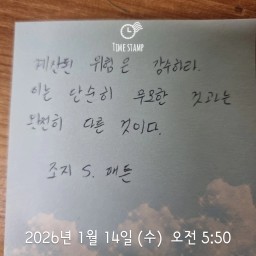 TIME STAMP
계산된 위험은 감수하라.
이는 단순히 무모한 것과는
완전히 다른 것이다.
조지 S. 패튼
2026년 1월 14일 (수) 오전 5:50